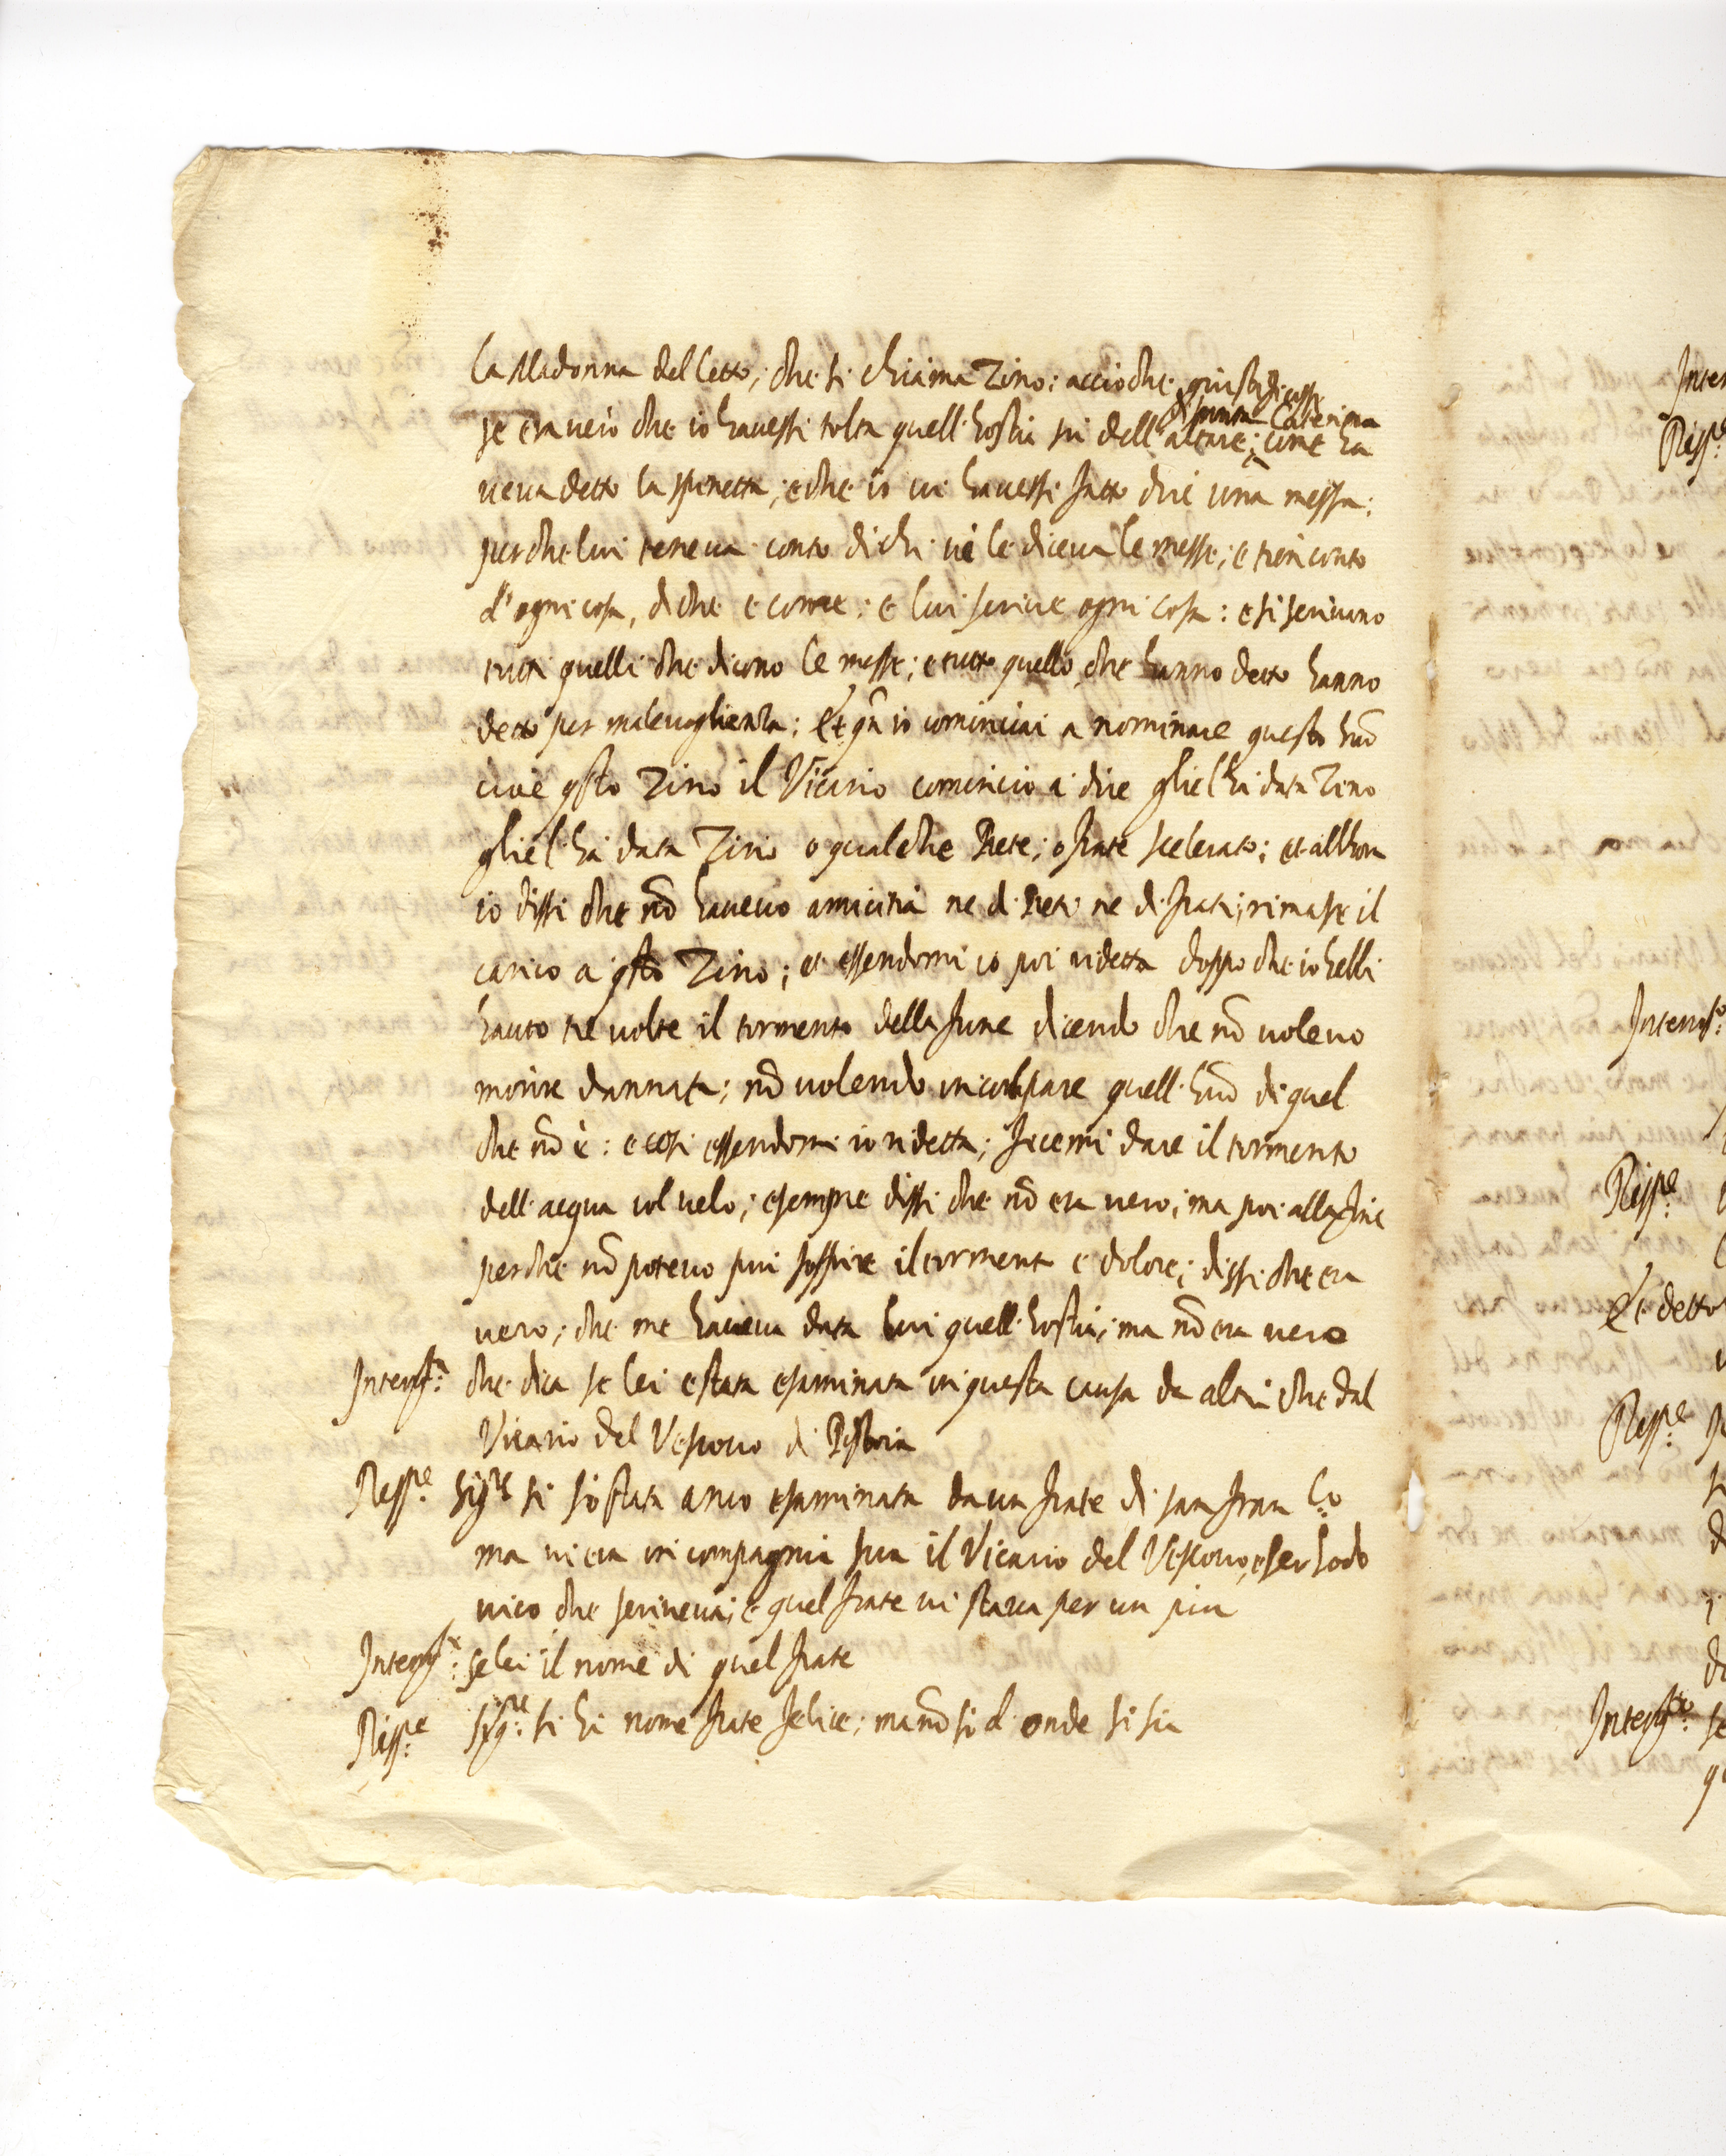 la Madonna del letto, che si chiama Zino: accio che giustificassi
se era vero che io havessi tolta quell'hostia su dell'altare di santa Caterina; come ha
veva detto la spinetta; e che io vi havessi fatto dire una messa;
perche lui teneva conto di chi ve le diceva le messe; e tien conto
d'ogni cosa, di che e come: e lui scrive ogni cosa: e si scrivono
tutti quelli che dicono le messe; e tutto quello che hanno detto hanno
detto per malevoglienza; Et qn io cominciai a nominare questo huo
cioè qsto Zino il Vicario comincio a dire gliel'ha data Zino
gliel'ha data Zino o qualche Prete; o frate scelerato; et allhora
io dissi che nō havevo amicitia ne di Preti ne di frati; rimase il
carico a qsto Zino; et essendomi io poi ridetta doppo che io hebbi
hauto tre volte il tormento della fune dicendo che nō volevo
morire dannata; nō volendo incolpare quell'huo di quel
che nō è: e cosi essendomi io ridetta; fecemi dare il tormento
dell'acqua col velo; e sempre dissi che nō era vero; ma poi alla fine
perche nō potevo piu soffrire il tormento e dolore; dissi che era
vero; che me haveva data lui quell'hostia; ma nō era vero
Interrta: che dica se lei è stata esaminata in questa causa da altri che dal
Vicario del Vescovo di Pistoia
Respe: Sigre si so stata anco esaminata da un frate di san franco
ma vi era in compagnia sua il Vicario del Vescovo, e ser Lodo
vico che scriveva; e quel frate vi stava per un piu
Interrta: se lei il nome di quel frate
Respe: Sigre: si ha nome frate felice; ma nō so d'onde si sia
Inter
Respe
Interrta:
Respe:
Et detto
Respe:
Interrta: se